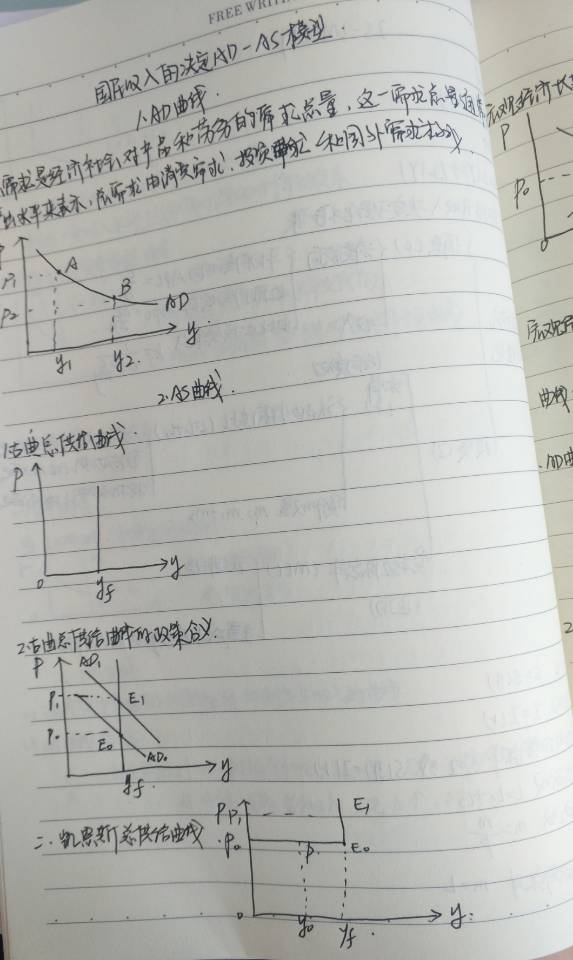 FREE WRIT
国民收入的决定AD-AS模型
1.AD曲线.
需求是经济社会对产品和劳务的需求总量,这一需求总量通常
出水平来表示,总需求由消费需求、投资需求 和国外需求构成
P
P1 A
P2 B AD
y
y1 y2
2.AS曲线.
1.古典总供给曲线.
P
0 yf y
2.古典总供给曲线的政策含义.
P AD1
P1 E1
P0 E0 AD0
yf y
二.凯恩斯总供给曲线
P P1 E1
P0 P E0
0 y0 yf y
宏观经济
P
P0
0
宏观经
曲线
AD曲
2